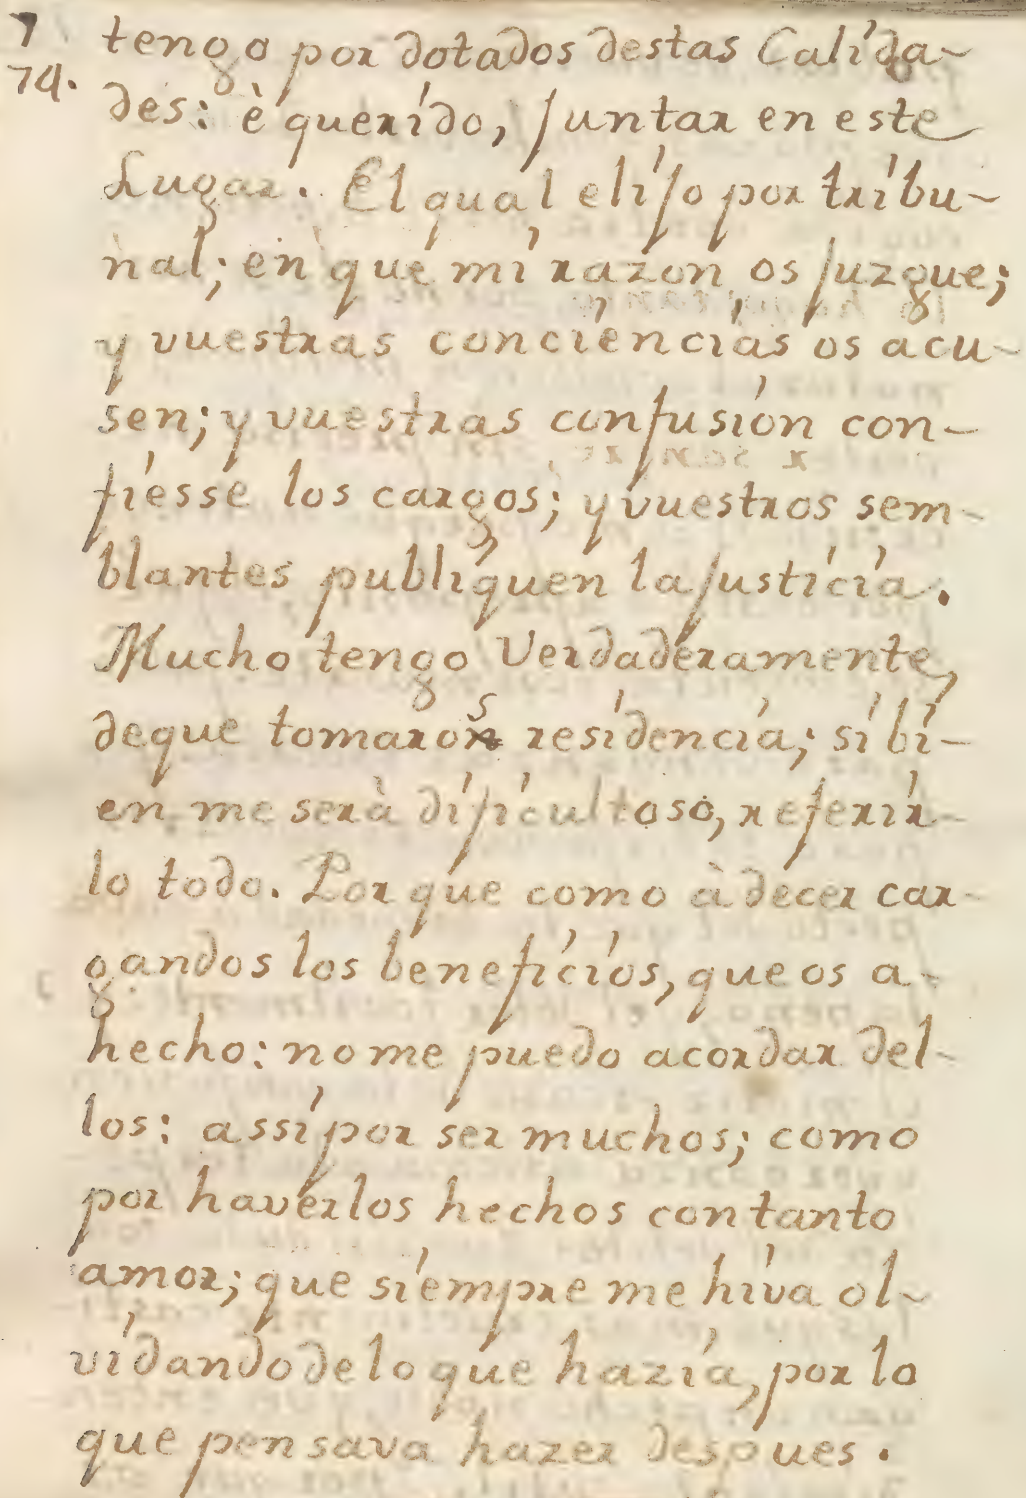 7 tengo por dotados destas Calida-
74. des: è querido, juntar en este
Lugar. El qual elijo por tribu-
nal; en que mi razon os juzgue;
y vuestras conciencias os acu-
sen; y vuestras confusion con-
fiesse los cargos; y vuestros sem-
blantes publiquen la justicia.
Mucho tengo Verdaderamente,
de que tomaros residencia; si bi-
en me serà dificultoso, referir-
lo todo. Por que como à decer car-
gandos los beneficios, que os a-
hecho: no me puedo acordar del-
los: assi por ser muchos; como
por haverlos hechos con tanto
amor; que siempre me hiva ol-
vidando de lo que hazia, por lo
que pensava hazer despues.